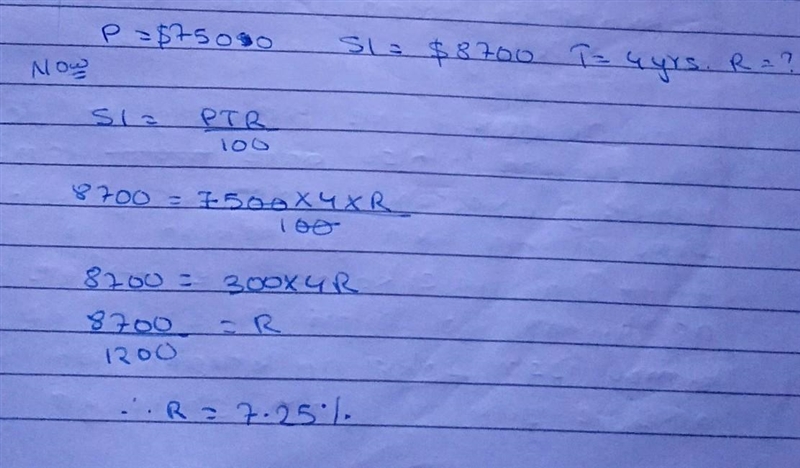 P = $75000 SI = $8700 T = 4 yrs. R = ?
Now
SI = PTR
100
8700 = 7500 × 4 × R
100
8700 = 300 × 4R
8700 = R
1200
∴ R = 7.25%